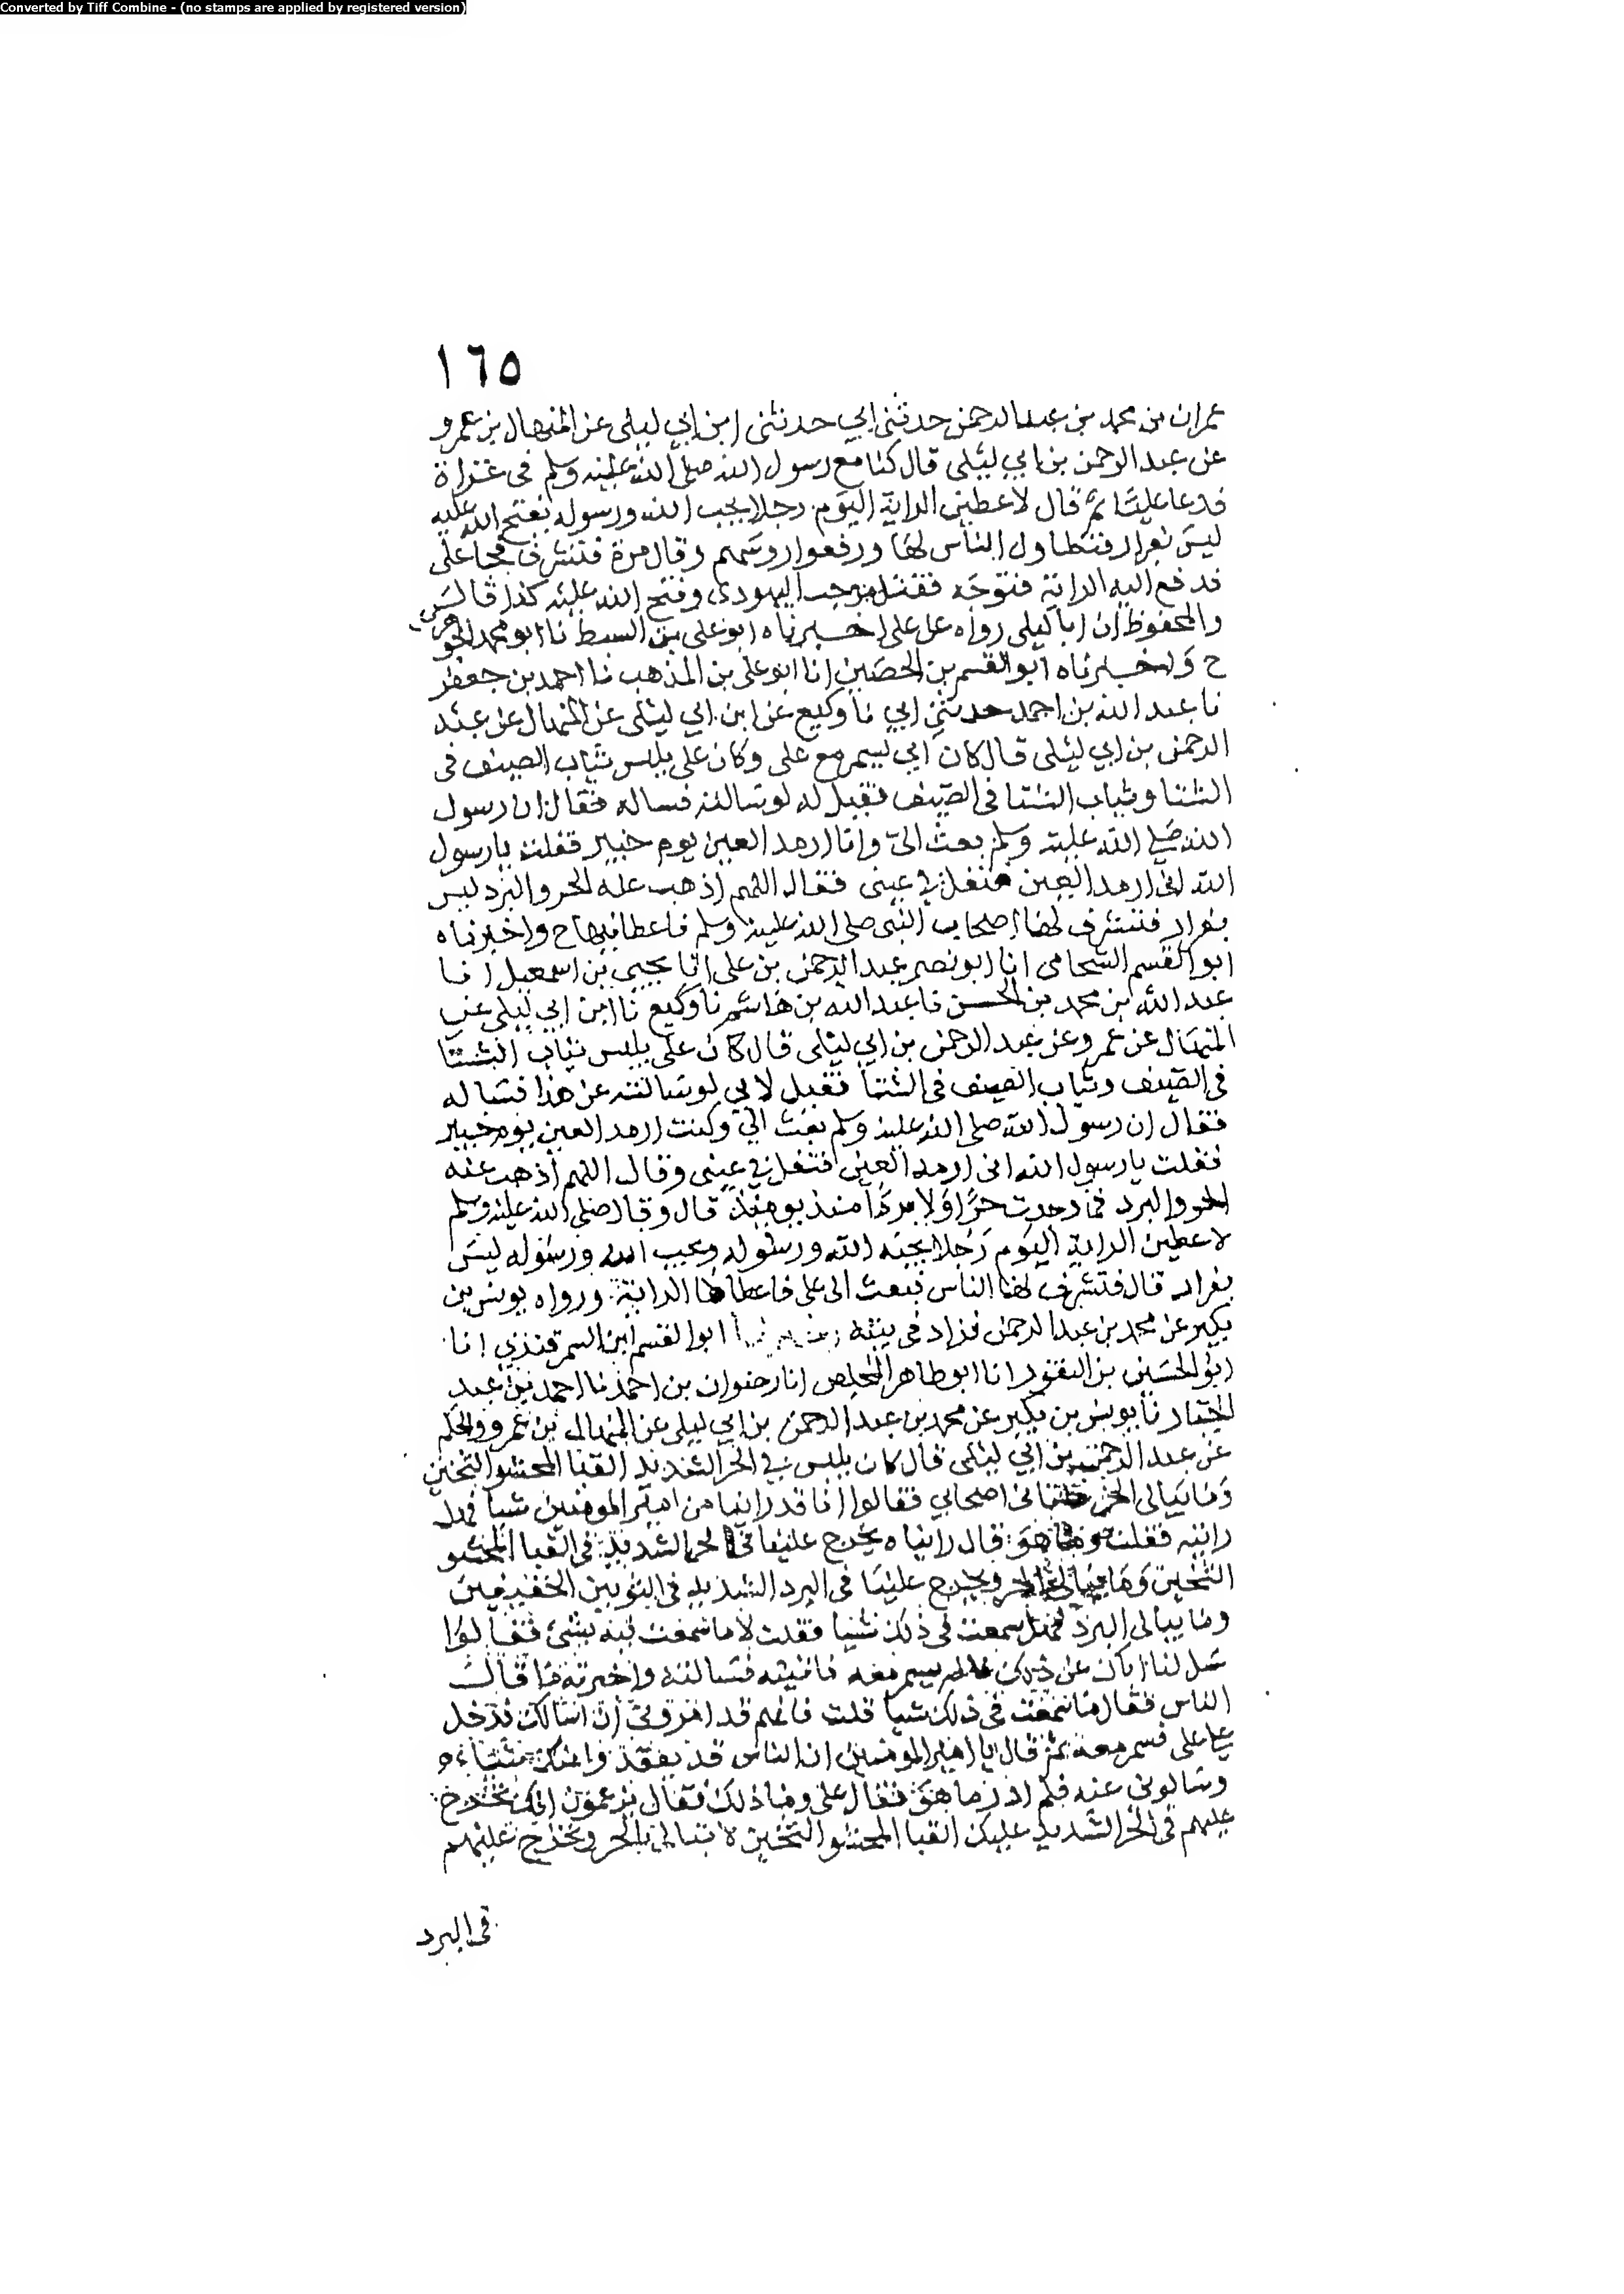 Converted by Tiff Combine - (no stamps are applied by registered version)
١٦٥
عمران بن محمد بن عبد الرحمن حدثني ابي حدثني ابن ابي ليلى عن المنهال بن عمرو
عن عبد الرحمن بن ابي ليلى قال كنا مع رسول الله صلى الله عليه وسلم في غزاة
فدعا عليا ثم قال لاعطين الراية اليوم رجلا يحب الله ورسوله يفتح الله عليه
ليس بفرار فتطاول الناس لها ورفعوا روسهم وقال مرة فتشرف فجا على
فدفع اليه الراية فتوجه فقتل مرحب اليهودي وفتح الله عليه كذا قال
والمحفوظ ان ابا ليلى رواه عن على اخبرناه ابو علي بن السبط نا ابو محمد الجوهري
ح واخبرناه ابو القسم بن الحصين انا ابو علي بن المذهب نا احمد بن جعفر
نا عبد الله بن احمد حدثني ابي نا وكيع عن ابن ابي ليلى عن المنهال عن عبد
الرحمن بن ابي ليلى قال كان ابي يسمر مع على وكان على يلبس ثياب الصيف في
الشتا وثياب الشتا في الصيف فقيل له لو سالته فساله فقال ان رسول
الله صلى الله عليه وسلم بعث الي وانا ارمد العين يوم خيبر فقلت يا رسول
الله اني ارمد العين فتفل في عيني فقال اللهم اذهب عنه الحر والبرد ليس
بفرار فتشرف لها اصحاب النبي صلى الله عليه وسلم فاعطانيها ح واخبرناه
ابو القسم الشحامي انا ابو نصر عبد الرحمن بن علي انا يحيى بن اسمعيل انا
عبد الله بن محمد بن الحسن نا عبد الله بن هاشم نا وكيع نا ابن ابي ليلى عن
المنهال عن عمرو عن عبد الرحمن بن ابي ليلى قال كان على يلبس ثياب الشتا
في الصيف وثياب الصيف في الشتا فقيل لابي لو سالته عن هذا فساله
فقال ان رسول الله صلى الله عليه وسلم بعث الي وكنت ارمد العين يوم خيبر
فقلت يا رسول الله اني ارمد العين فتفل في عيني وقال اللهم اذهب عنه
الحر والبرد فما وجدت حرا ولا بردا منذ يومئذ قال وقال صلى الله عليه وسلم
لاعطين الراية اليوم رجلا يحبه الله ورسوله ويحب الله ورسوله ليس
بفرار قال فتشرف لها الناس فبعث الى علي فاعطاها الراية ورواه يونس بن
بكير عن محمد بن عبد الرحمن فزاد في ابو القسم ابن السمرقندي انا
ابو الحسين بن النقور انا ابو طاهر المخلص انا رضوان بن احمد نا احمد بن عبد
الجبار نا يونس بن بكير عن محمد بن عبد الرحمن بن ابي ليلى عن المنهال بن عمرو والحكم
عن عبد الرحمن بن ابي ليلى قال كان يلبس في الحر الشديد القبا المحشو الثخين
وما يبالي الحر فاتاني اصحابي فقالوا انا قد راينا من امير المومنين شيا فهل
رايته فقلت وما هو قال رايناه يخرج علينا في الحر الشديد في القبا المحشو
الثخين وما يبالي الحر ويخرج علينا في البرد الشديد في الثوبين الخفيفين
وما يبالي البرد فهل سمعت في ذلك شيا فقلت لا ما سمعت فيه بشئ فقالوا
سل لنا اباك عن ذلك فانه يسمر معه فاتيته فسالته واخبرته ما قال
الناس فقال ما سمعت في ذلك شيا قلت فانهم قد امروني ان اسالك فدخل
على على فسمر معه ثم قال يا امير المومنين ان الناس قد تفقدوا منك شيئا
وسالوني عنه فلم ادر ما هو فقال على وما ذلك فقال يزعمون انك تخرج
عليهم في الحر الشديد عليك القبا المحشو الثخين لا تبالي بالحر وتخرج عليهم
في البرد